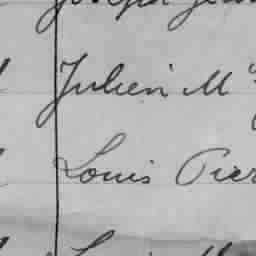 Joseph
Julien M
Louis Pier
Louis